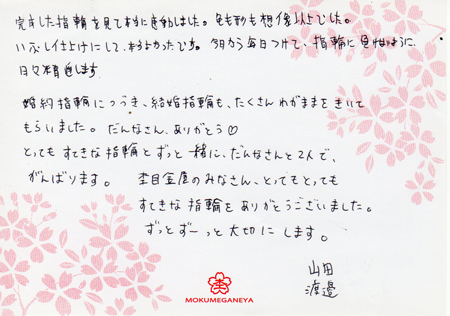 完成した指輪を見て本当に感動しました。色も形も想像以上でした。
いぶし仕上げにして、本当よかったです。今日から毎日つけて、指輪に見合うように、
日々精進します
婚約指輪につづき、結婚指輪も、たくさんわがままをきいて
もらいました。だんなさん、ありがとう♡
とってもすてきな指輪とずっと一緒に、だんなさんと2人で、
がんばります。 杢目金屋のみなさん、とってもとっても
すてきな指輪をありがとうございました。
ずっとずーっと大切にします。
山田
渡邉
MOKUMEGANEYA